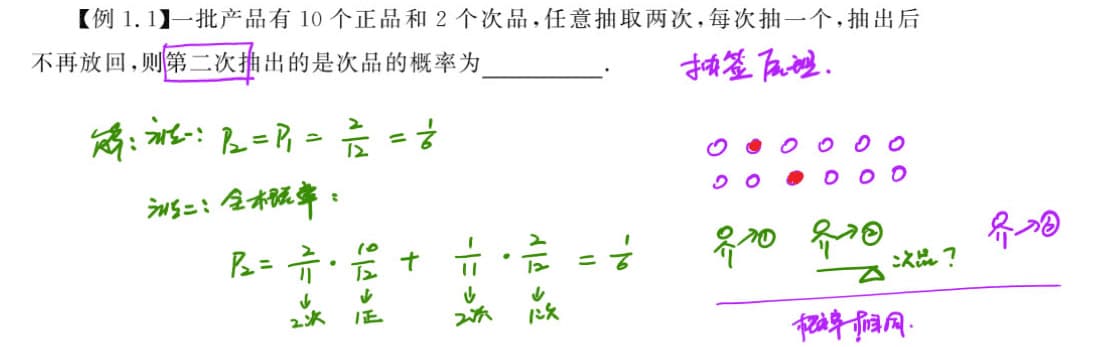 【例 1.1】一批产品有 10 个正品和 2 个次品,任意抽取两次,每次抽一个,抽出后
不再放回,则第二次抽出的是次品的概率为________.
抽签原理.
解: 法一: P₂ = P₁ = 2/12 = 1/6
法二: 全概率:
P₂ = 2/11 · 10/12 + 1/11 · 2/12 = 1/6
↓ ↓ ↓ ↓
2次 1正 2次 1次
→① →② →⑥
次品?
概率相同.